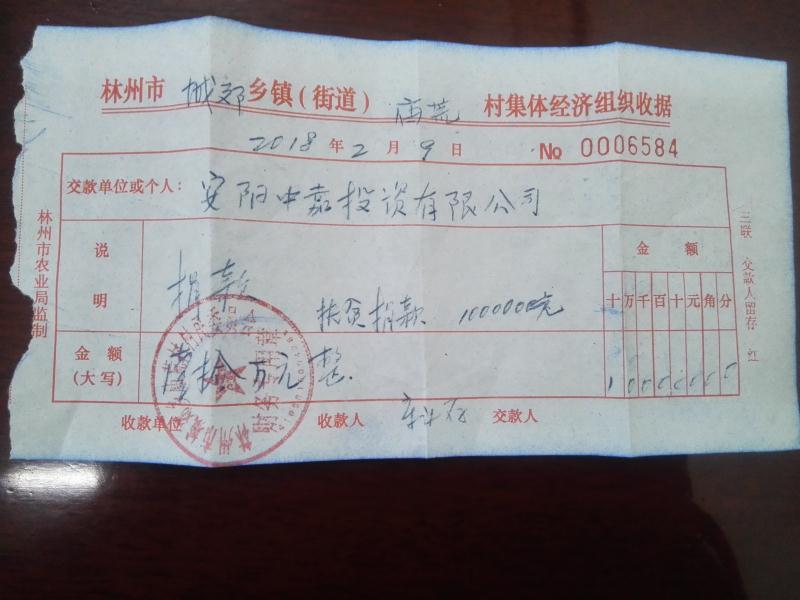 林州市 城郊 乡镇（街道） 庙荒 村集体经济组织收据
2018 年 2 月 9 日 № 0006584
交款单位或个人： 安阳中嘉投资有限公司
说明 捐款 扶贫捐款 100000元
金额
十万千百十元角分
金额（大写） 壹拾万元整
10000000
收款单位 收款人 交款人
林州市农业局监制
三联 交款人留存 红
财务专用章